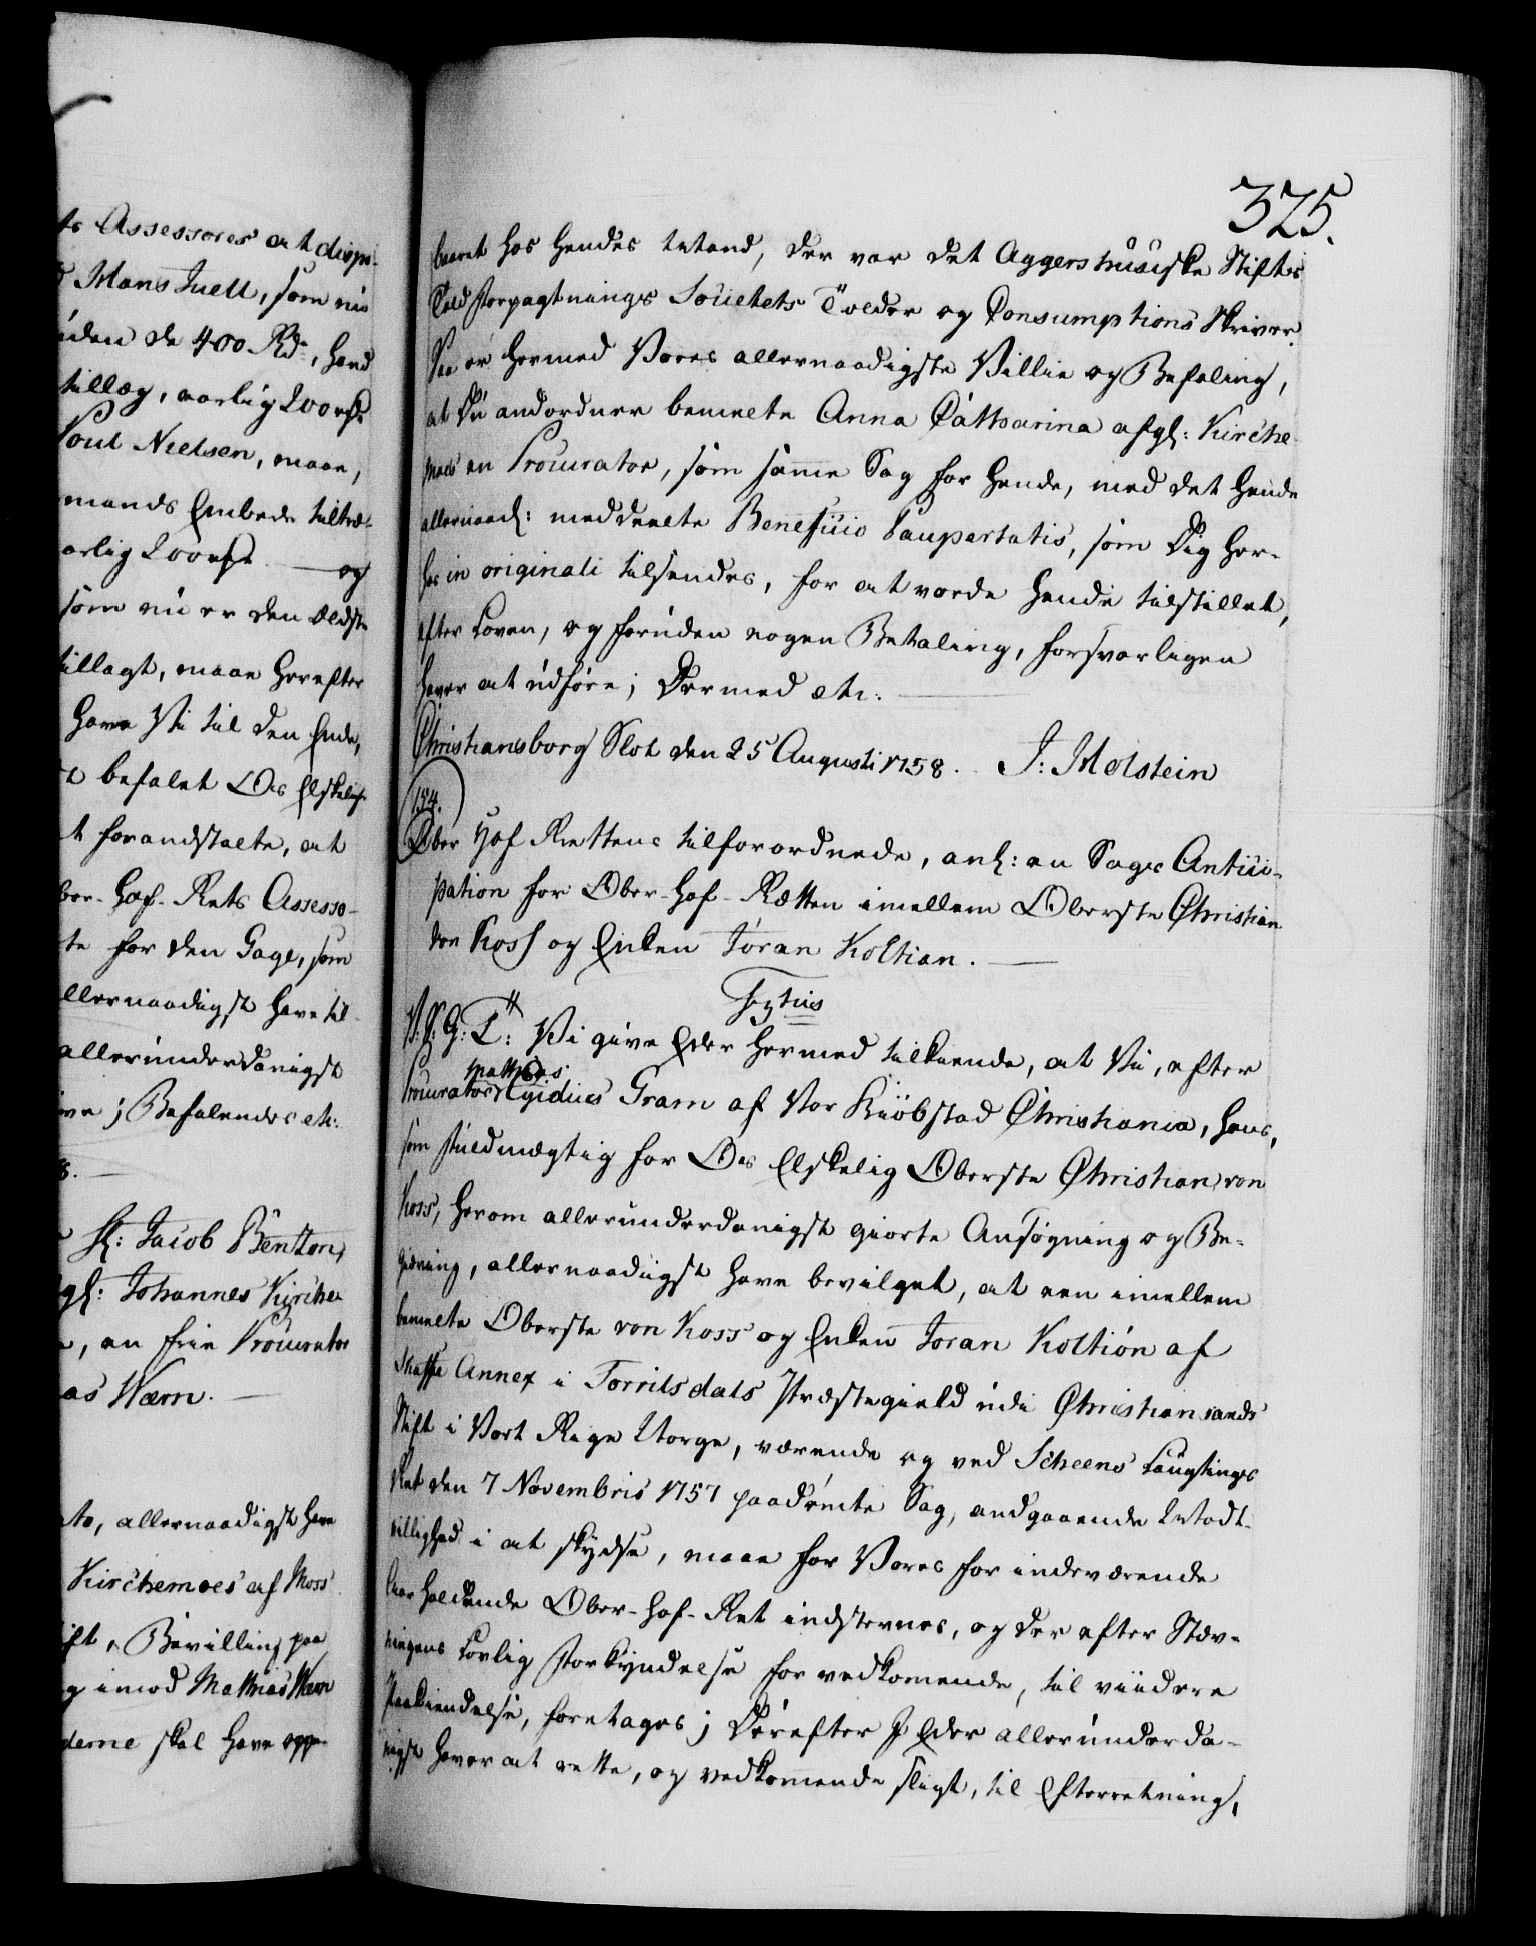 ts Assessores at dispo-
Mons Juell, som nu
uden de 400 Rd, hand
tillæg, aarlig 200 rd
Poul Nielsen, maae,
mands Embede tiltræ-
aarlig 200 rd og
som nu er den Eldste
tillagt, maae herefter
have Vi til den Ende,
befalet Os Elskelig
t foranstalte, at
ber-Hof-Rets Assesso-
te for den Gage, som
allernaadigst have til
allerunderdanigst
ive; Befalendes etc:
8.
Sl: Jacob Benlton,
gl: Johannes Kirche
, en frie Procurator
as Wærn.
to, allernaadigst have
Kirchemoes af Moss
ift, Bevilling paa
g imod Mathias Wærn
derne skal have oppe-
325.
baaret hos hendes Mand, der var det Aggershusiske Stifts
Told Forpagtnings Societets Tolder og Consumptions Skriver.
Saa er hermed Vores allernaadigste Villie og Befaling,
at Du andordner bemelte Anna Catharina afgl: Kirche
moes en Procurator, som samme Sag for hende, med det hende
allernaad: meddeelte Beneficio Paupertatis, som Dig her-
hos in originali tilsendes, for at vorde hende tilstillet,
efter Loven, og foruden nogen Betaling, forsvarligen
haver at udføre; Dermed etc.
Christiansborg Slot den 25 Augusti 1758. J: Holstein
154.
Ober Hof Rettens tilforordnede, anl: en Sags Antici-
pation for Ober-Hof-Retten imellem Oberste Christian
von Koss og Enken Joran Koltian.
Friderich 5tus
V. S. G: T: Vi give Eder hermed tilkiende, at Vi, efter
Mathias
Procurator Egidius Gram af Vor Kiøbstad Christiania, hans,
som Fuldmægtig for Os Elskelig Oberste Christian von
Koss, herom allerunderdanigst giorte Ansøgning og Be-
giæring, allernaadigst have bevilget, at een imellem
bemelte Oberste von Koss og Enken Joran Koltion af
Skaffse Annex i Torrilsdals Præstegield udi Christiansands
Stift i Vort Rige Norge, værende og ved Scheens Laugtings
Ret den 7 Novembris 1757 paadømte Sag, andgaaende Modt-
villighed i at skydse, maae for Vores for indeværende
Aar holdende Ober-Hof-Ret indstevnes, og der efter Stæv-
ningens Lovlig Forkyndelse for vedkommende, til viidere
Paakiendelse, foretages; Derefter I Eder allerunderda-
nigst haver at rette, og vedkommende sligt, til Efterretning,